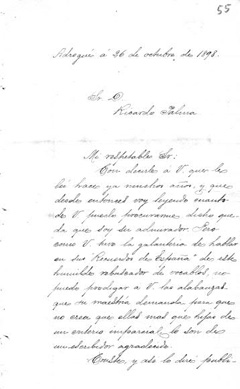 55
Adrogué á 26 de octubre, de 1898.
Sr. D.
Ricardo Palma
Mi respetable Sr:
Con decirle á V. que le
leí hace ya muchos años, y que
desde entonces voy leyendo cuanto
de V. puedo procurarme, dicho que-
da que soy su admirador. Pero
como V. tuvo la galantería de hablar
en sus "Recuerdos de España" de este
humilde rebuscador de vocablos, no
puedo prodigar á V. las alabanzas
que su maestría demanda, para que
no crea que ellas mas que hijas de
un criterio imparcial lo son de
un escribidor agradecido.
Conste, y así lo diré públi-